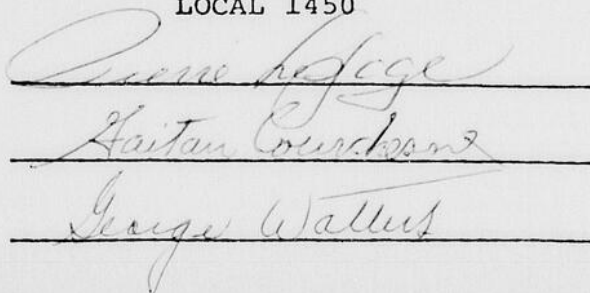 LOCAL 1450
Pierre Lefage
Gaitan Courchesne
George Watters